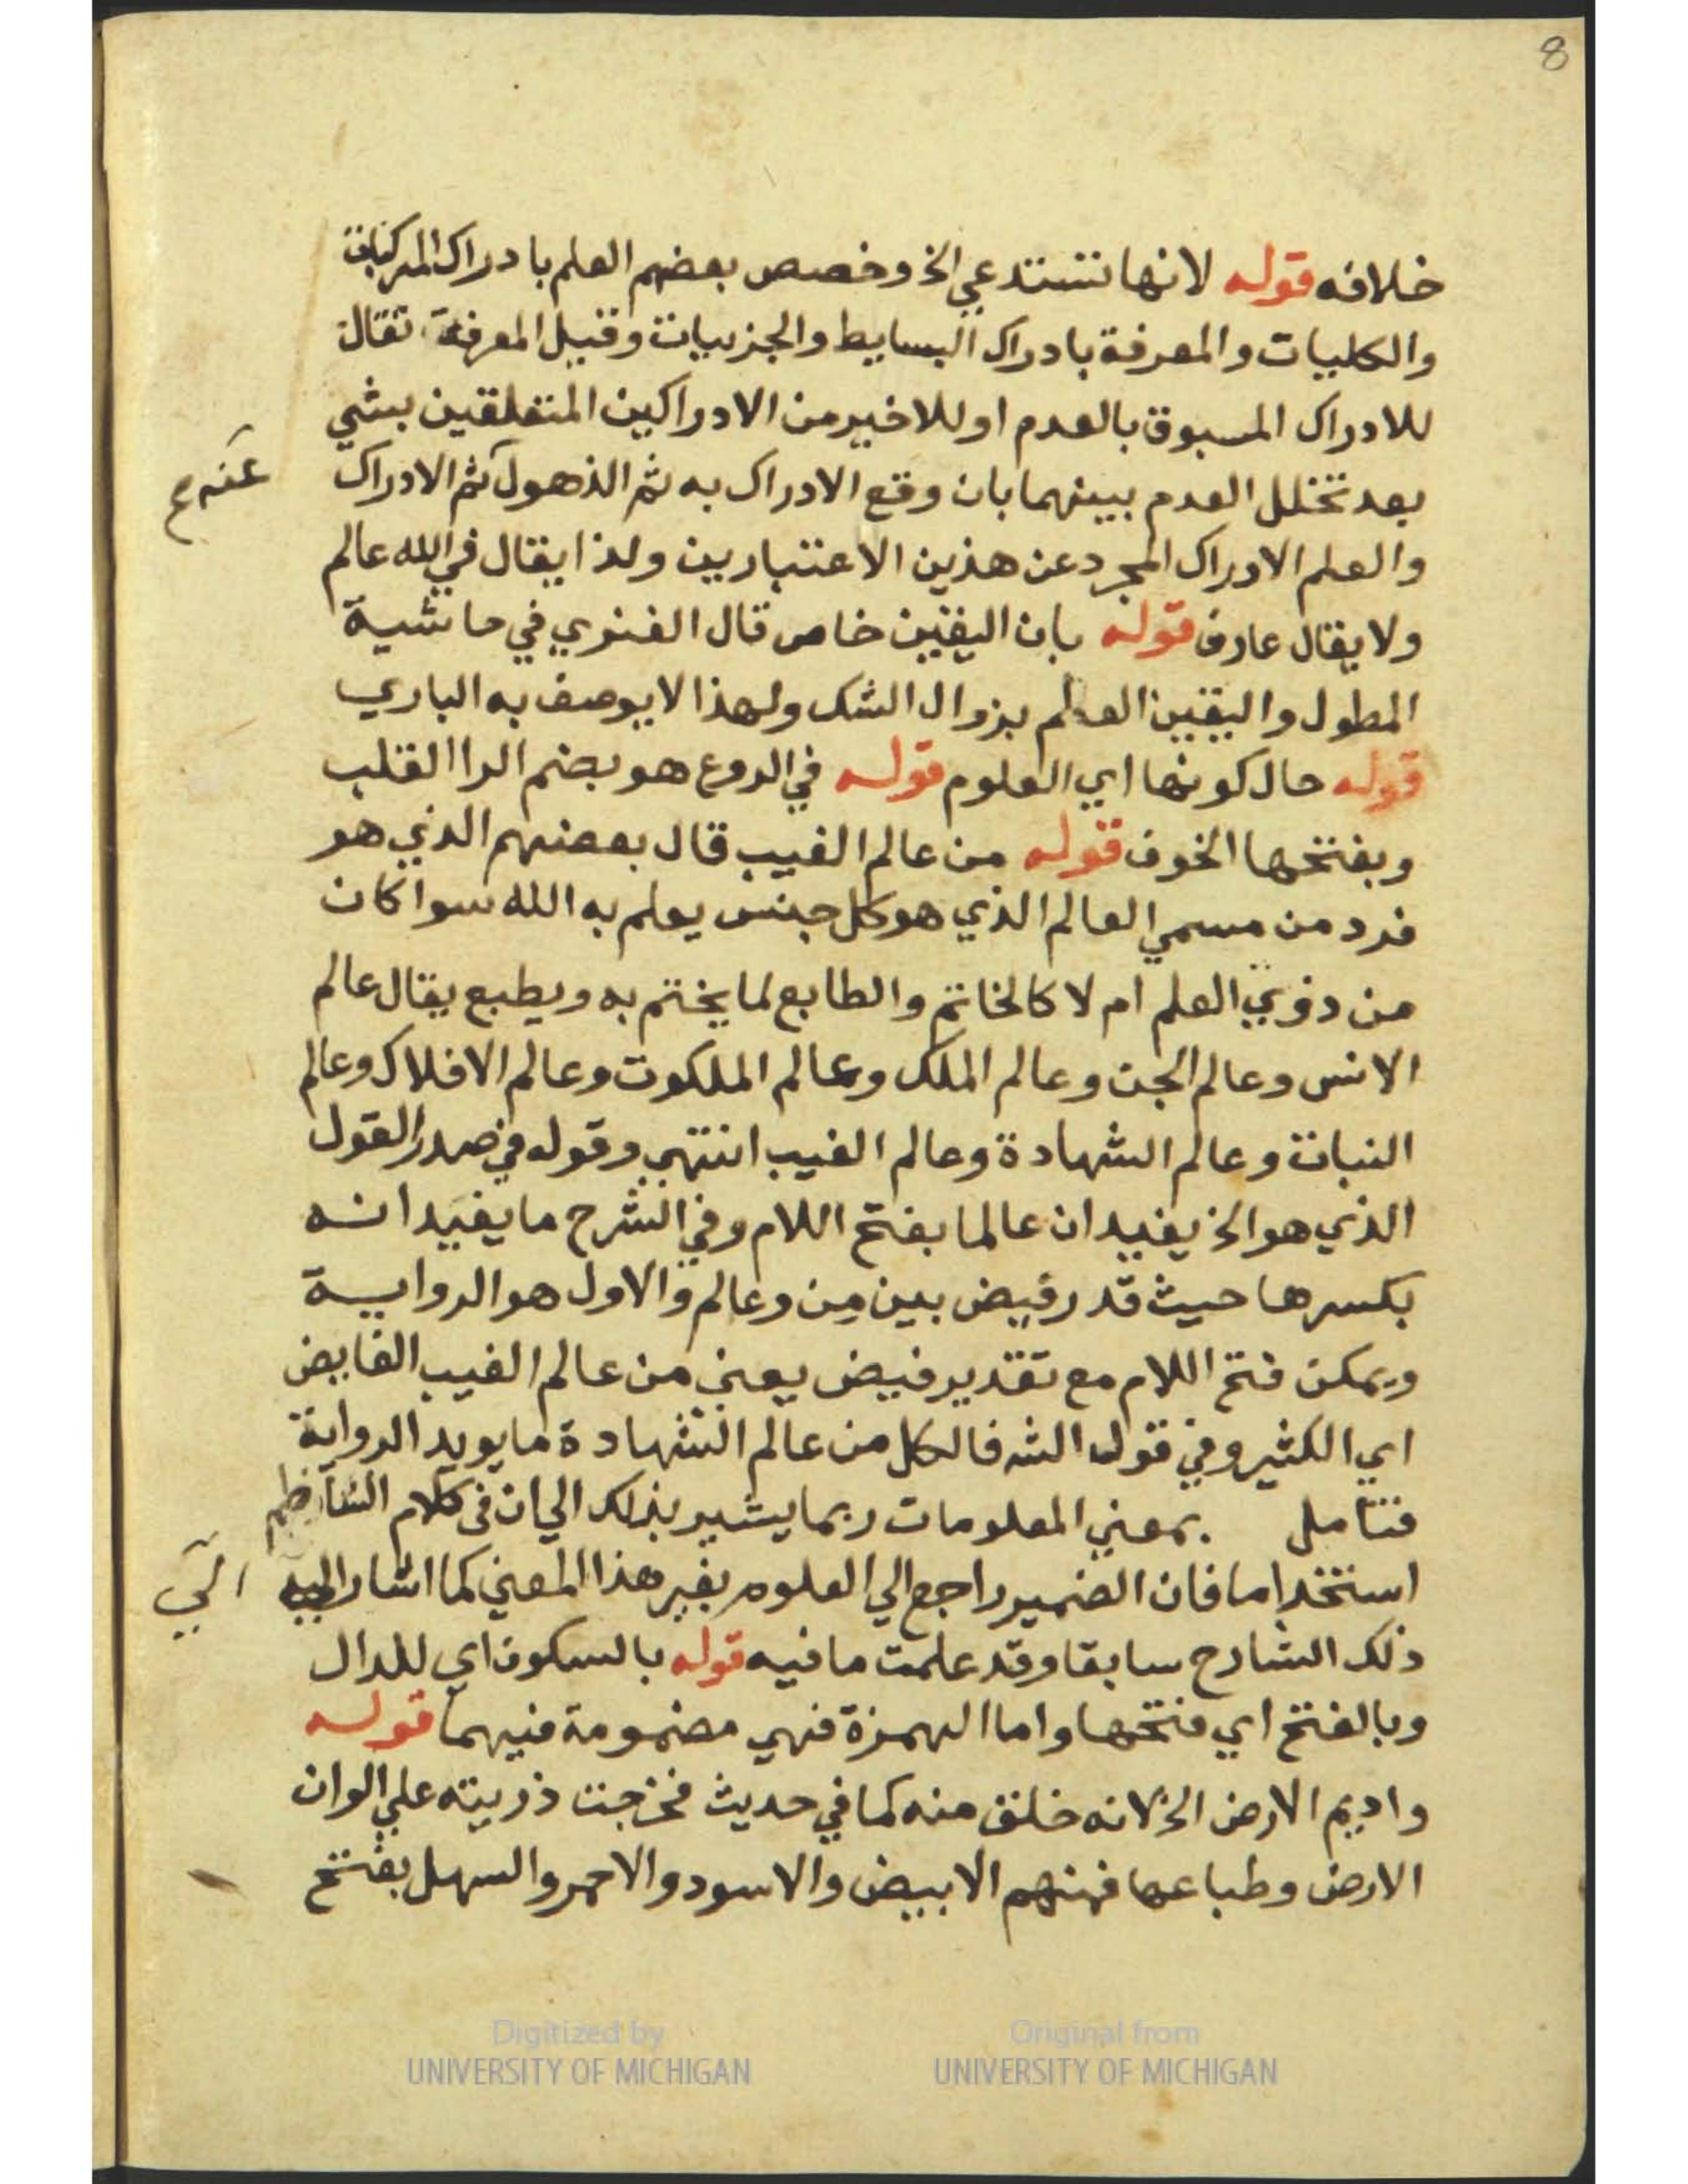 8
خلافه قوله لانها تستدعي الخ وخصص بعضهم العلم بادراك المركبات
والكليات والمعرفة بادراك البسايط والجزييات وقيل المعرفة تقال
للادراك المسبوق بالعدم او للاخير من الادراكين المتعلقين بشي
بعد تخلل العدم بينهما بان وقع الادراك به ثم الذهول ثم الادراك
عنه صح
والعلم الادراك المجرد عن هذين الاعتبارين ولذا يقال في الله عالم
ولا يقال عارف قوله بان اليقين خاص قال الفنري في حاشية
المطول واليقين العلم بزوال الشك ولهذا لا يوصف به الباري
قوله حال كونها اي العلوم قوله في الروع هو بضم الرا القلب
وبفتحها الخوف قوله من عالم الغيب قال بعضهم الذي هو
فرد من مسمي العالم الذي هو كل جنس يعلم به الله سوا كان
من ذوي العلم ام لا كالخاتم والطابع لما يختم به ويطبع يقال عالم
الانس وعالم الجن وعالم الملك وعالم الملكوت وعالم الافلاك وعالم
النبات وعالم الشهادة وعالم الغيب انتهي وقوله في صدر القول
الذي هو الخ يفيد ان عالما بفتح اللام وفي الشرح ما يفيد انه
بكسرها حيث قدر فيض بين من وعالم والاول هو الرواية
ويمكن فتح اللام مع تقدير فيض يعني من عالم الغيب الفايض
اي الكثير وفي قول الشه فالكل من عالم الشهادة ما يويد الرواية
فتامل بمعني المعلومات ربما يشير بذلك الي ان في كلام الناظم
استخداما فان الضمير راجع الي العلوم بغير هذا المعني كما اشار اليه
الي
ذلك الشارح سابقا وقد علمت ما فيه قوله بالسكون اي للدال
وبالفتح اي فتحها واما الهمزة فهي مضمومة فيهما قوله
واديم الارض الخ لانه خلق منه كما في حديث فخرجت ذريته علي الوان
الارض وطباعها فمنهم الابيض والاسود والاحمر والسهل بفتح
Digitized by
UNIVERSITY OF MICHIGAN
Original from
UNIVERSITY OF MICHIGAN